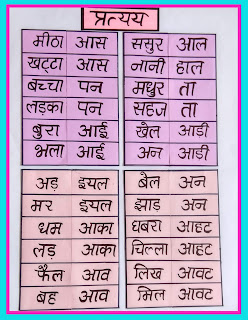 प्रत्यय
मीठा आस
खट्टा आस
बच्चा पन
लड़का पन
बुरा आई
भला आई
ससुर आल
नानी हाल
मधुर ता
सहज ता
खेल आडी
अन आडी
अड़ इयल
मर इयल
धम आका
लड़ आका
फैल आव
बह आव
बेल अन
झाड़ अन
घबरा आहट
चिल्ला आहट
लिख आवट
मिल आवट